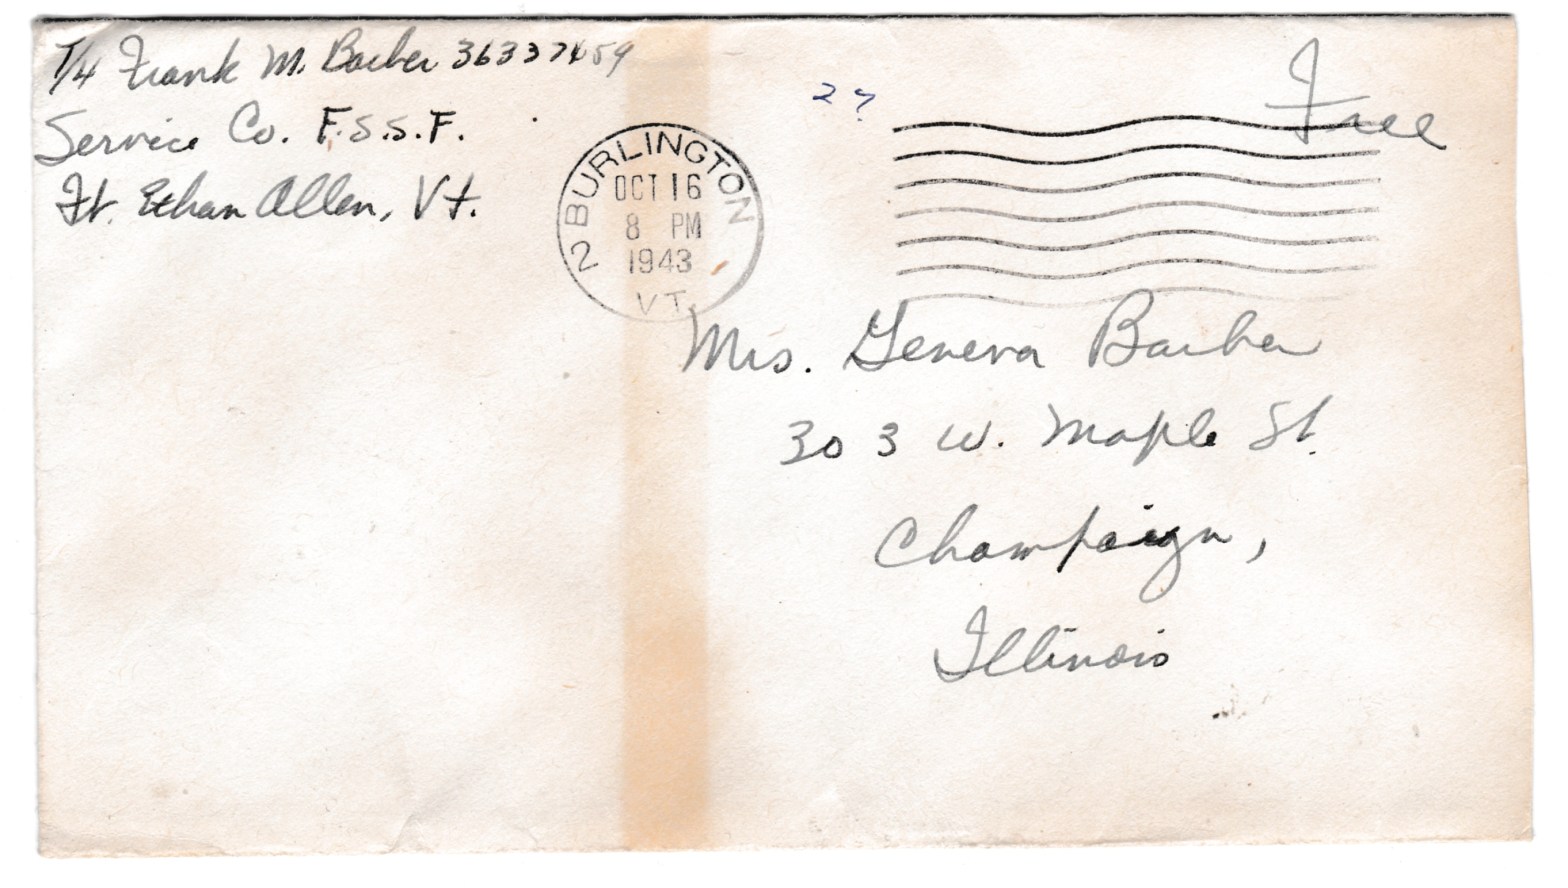 T/4 Frank M. Barber 36337459
Service Co. F.S.S.F.
Ft. Ethan Allen, Vt.
27
Free
BURLINGTON
OCT 16
8 PM
1943
2
VT.
Mrs. Geneva Barber
303 W. Maple St.
Champaign,
Illinois